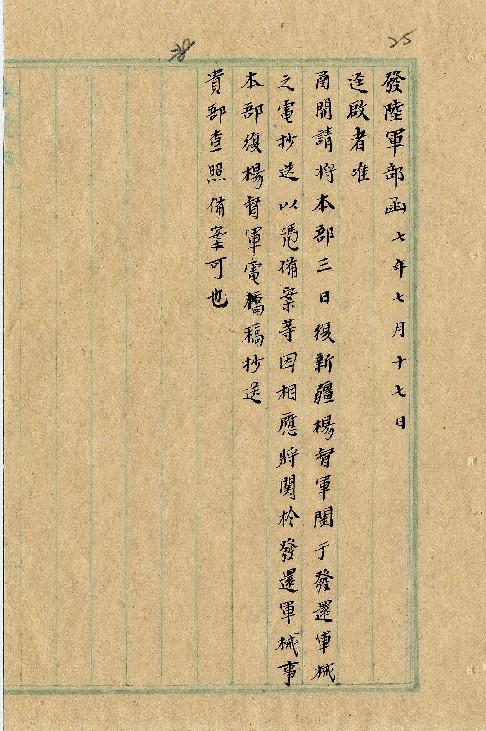 25
發陸軍部函 七年七月十七日
逕啟者准
函開請將本部三日復新疆楊督軍關于發還軍械
之電抄送以凴備案等因相應將關於發還軍械事
本部復楊督軍電稿抄送
貴部查照備案可也